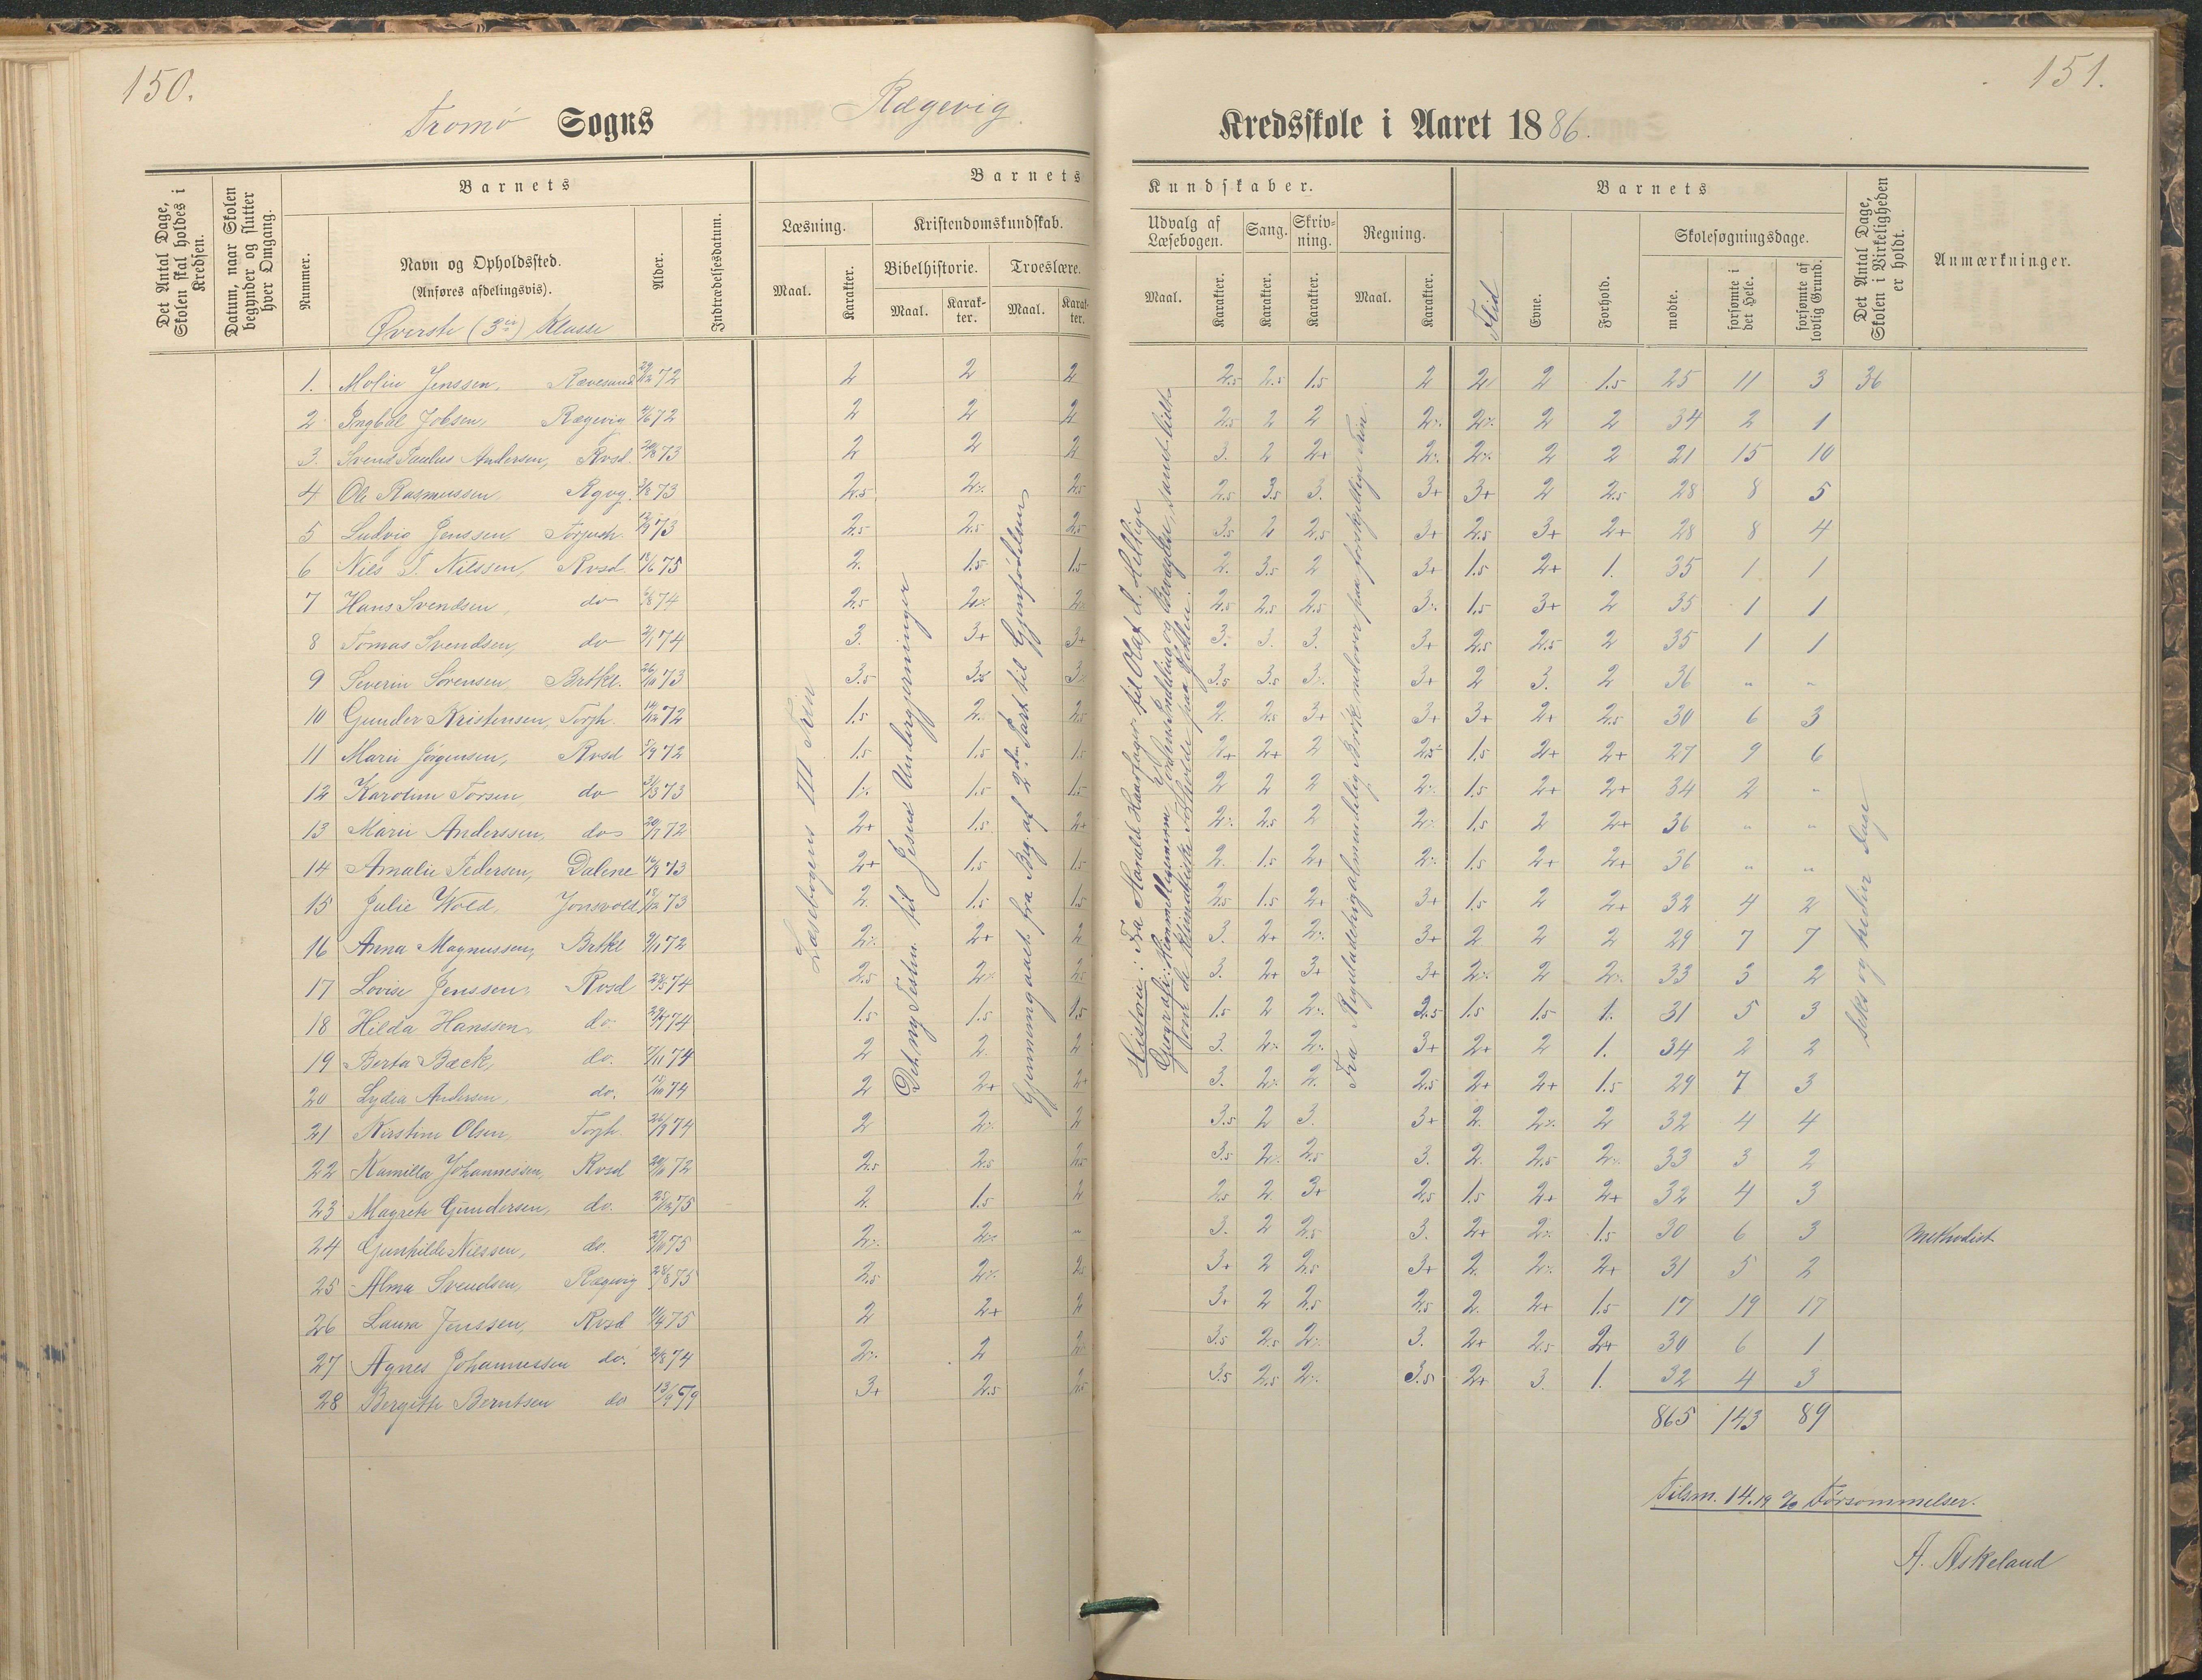 150.
Tromø Sogns Rægevig
Kredsskole i Aaret 1886.
151.
Det Antal Dage, Skolen skal holdes i Kredsen.
Datum, naar Skolen begynder og slutter hver Omgang.
Barnets
Nummer.
Navn og Opholdssted.
(Anføres afdelingsvis).
Øverste (3die) Klasse
Alder.
Indtrædelsesdatum.
Barnets
Kundskaber.
Læsning.
Maal.
Karakter.
Kristendomskundskab.
Bibelhistorie.
Maal.
Karakter.
Troeslære.
Maal.
Karakter.
Udvalg af Læsebogen.
Maal.
Karakter.
Sang.
Karakter.
Skrivning.
Karakter.
Regning.
Maal.
Karakter.
Barnets
Flid
Evne.
Forhold.
Skolesøgningsdage.
mødte.
forsømte i det Hele.
forsømte af lovlig Grund.
Det Antal Dage, Skolen i Virkeligheden er holdt.
Anmærkninger.
1. Molin Jenssen, Ravesund 72 2 2 2 2.5 2.5 1.5 2 2 2 1.5 25 11 3 36
2 Ingbal Jobsen, Rægevig 72 2 2 2 2.5 2 2 2 2 34 2 1
3. Svend Paulus Andersen, Rvsd. 73 2 2 2 3. 2 2+ 2 2 21 15 10
4 Ole Rasmussen, Rgvg. 73 2.5 2.5 2.5 3.5 3. 3+ 3+ 2 2.5 28 8 5
5 Ludvig Jenssen, 73 2.5 2.5 2.5 3.5 2 2.5 3+ 2.5 3+ 2+ 28 8 4
6 Nils T. Nilssen, Rvsd. 18/6 75 2. 1.5 1.5 2. 3.5 2 3+ 1.5 2+ 1. 35 1 1
7 Hans Svendsen, do 74 2.5 2.5 2.5 2.5 1.5 3+ 2 35 1 1
8 Tomas Svendsen, do 74 3. 3+ 3+ 3. 3. 3. 3+ 2.5 2.5 2 35 1 1
9 Severin Sørensen, Brtkl. 26/10 73 3.5 3.5 3.5 3+ 2 3. 2 36 " "
10 Gunder Kristensen, Torjh. 14/12 72 1.5 2. 2.5 2. 2.5 3+ 3+ 3+ 2+ 2.5 30 6 3
11 Marie Jørgensen, Rvsd 5/9 72 1.5 1.5 1.5 2+ 2+ 2 1.5 2+ 2+ 27 9 6
12 Karoline Torsen do 31/3 73 1.5 1.5 2 2 2 1.5 2+ 2+ 34 2 "
13 Marie Anderssen, do 72 2+ 1.5 2+ 2.5 2 1.5 2 2+ 36 " "
14 Amalie Pedersen, Dalene 73 2+ 1.5 1.5 2. 1.5 2+ 1.5 2+ 2+ 36 " "
15 Julie Wold, Jonsvold 73 2. 1.5 1.5 2.5 1.5 2+ 3+ 1.5 2 2+ 32 4 2
16 Anna Magnussen, Brtkl 9/11 72 2+ 2 3. 2+ 3+ 2 2 2 29 7 7
17 Lovise Jenssen, Rvsd 74 2.5 2.5 3. 2+ 3+ 3+ 2 33 3 2
18 Hilda Hanssen, do 74 1.5 1.5 1.5 1.5 2 2.5 1.5 1.5 1. 31 5 3
19 Berta Bæck, do. 7/11 74 2 2. 2 3. 3+ 2+ 2 1. 34 2 2
20 Lydia Andersen, do. 74 2 2+ 2+ 3. 2. 2.5 2+ 2+ 1.5 29 7 3
21 Kirstine Olsen, Torjh. 26/9 74 2 2 3.5 2 3. 3+ 2. 2 32 4 4
22 Kamilla Johannessen, Rvsd 72 2.5 2.5 2.5 3.5 2.5 3. 2. 2.5 33 3 2
23 Magrete Gundersen, do. 25/12 75 2. 1.5 2 2.5 2 3+ 2.5 1.5 2+ 2+ 32 4 3
24 Gunhilde Nilssen, do. 75 " 3. 2 2.5 3. 2+ 1.5 30 6 3 Methodist
25 Alma Svendsen, Rægevig 28/8 75 2.5 3+ 2 2.5 3+ 2. 2+ 31 5 2
26 Laura Jenssen, Rvsd 75 2 2+ 2 3+ 2 2.5 2.5 2. 2+ 1.5 17 19 17
27 Agnes Johannessen do. 74 2 3.5 2.5 3. 2+ 2.5 2+ 30 6 1
28 Bergitte Berntsen do 13/9 3+ 2.5 2.5 3.5 2.5 3.5 2+ 3. 1. 32 4 3
865 143 89
Læsebogens III Trin
Det ny Testm. til Jesus Undergjerninger
Gjennemgaaet fra Beg. af 2den Part til Gjenfødelsen
Historie: Fra Harald Haarfager til Olaf d. Hellige
Fra Regeladetri nedover paa forskjellige Trin
seks og tredve Dage
Tilsm. 14.19 % Forsømmelser.
A. Askeland